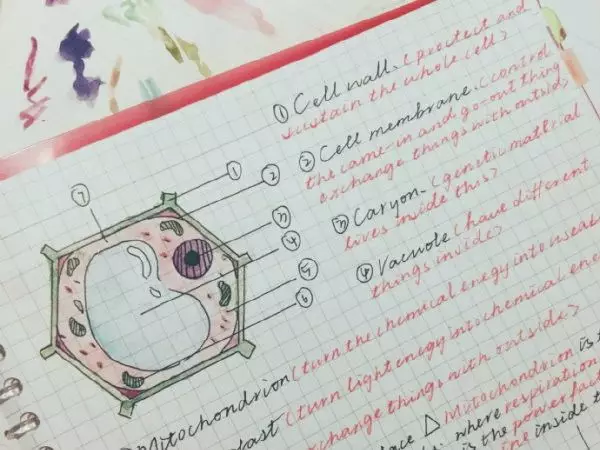 ① Cell wall. (protect and
sustain the whole cell)
② Cell membrane. (control
the came-in and go-out thing
exchange things with outside
③ Caryon. (genetic material
lives inside this)
④ Vacuole (have different
things inside)
Mitochondrion (turn the chemical enegy into usea
(turn light energy into chemical ene
change things with outside)
△ Mitochondrion is t
where respiration
is the power fact
inside t
⑦
①
②
③
④
⑤
⑥